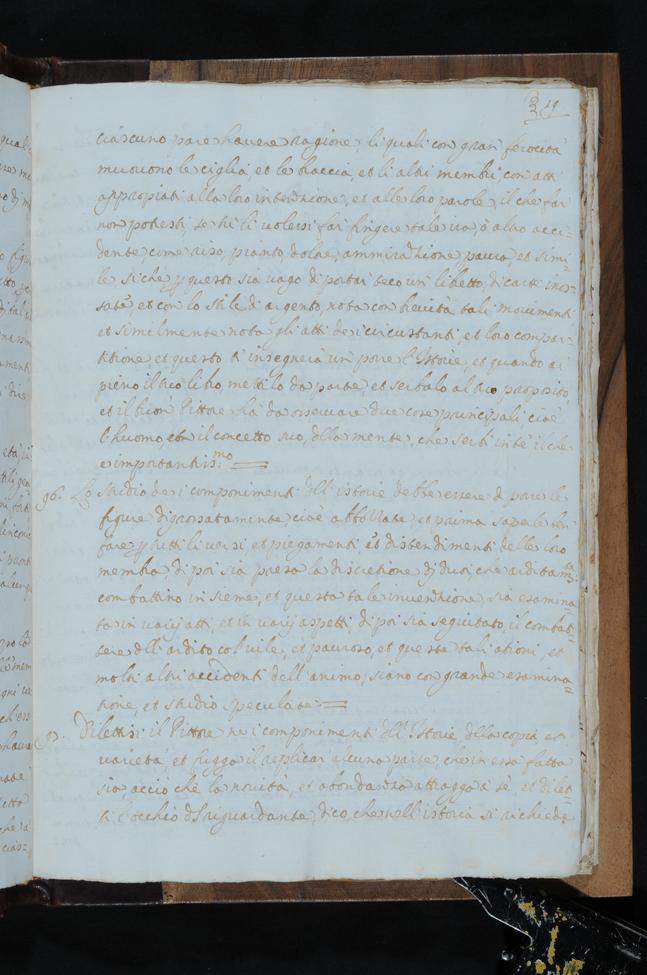 29
ciascuno pare havere ragione, li quali con gran ferocità
muouono le ciglia, et le braccia, et li altri membri, con atti
appropiati alla loro intentione, et alle loro parole, il che far
non potresti, se tu li volessi far fingere tale ira, ò altro acci=
dente, come riso, pianto, dolore, ammiratione, paura, et simi=
le, si che p questo sia vago di portar teco un libretto, di carte
et con lo stile di argento, nota con brevità tali movimenti
et similmente nota gli atti de i circustanti, et loro compar=
titione, et questo ti insegnerà un porre l'Istorie, et quando ai
pieno il tuo libro, mettilo da parte, et serbalo al tuo proposito,
et il buon Pittore hà da osservare due cose principali cioè
l'huomo, et il concetto suo, della mente, che serbi in te il che
è importantis.mo
96. Lo studio de i componimenti dell istorie debbe essere di porre le
figure digrossatamente, cioè abbozzate, et prima saperle ben
fare p tutti li versi, et piegamenti, et distendimenti delle loro
membra, di poi sia presa la discretione di duoi, che arditam.te
combattino insieme, et questa tale inventione sia esamina=
ta in varij atti, et in varij aspetti, di poi sia seguitato, il combat=
tere dell' ardito col vile, et pauroso, et queste tali ationi, et
molti altri accidenti dell' animo, siano con grande esamina=
tione, et studio speculate
Dilettisi il Pittore ne i componimenti dell' Istorie della copia et
varietà, et fugga il replicar alcuna parte, che in essa fatta
sia, accio che la novità, et abondanza attragga à sè, et dilet=
ti l'occhio del riguardante, dico, che nell' istoria si richiede